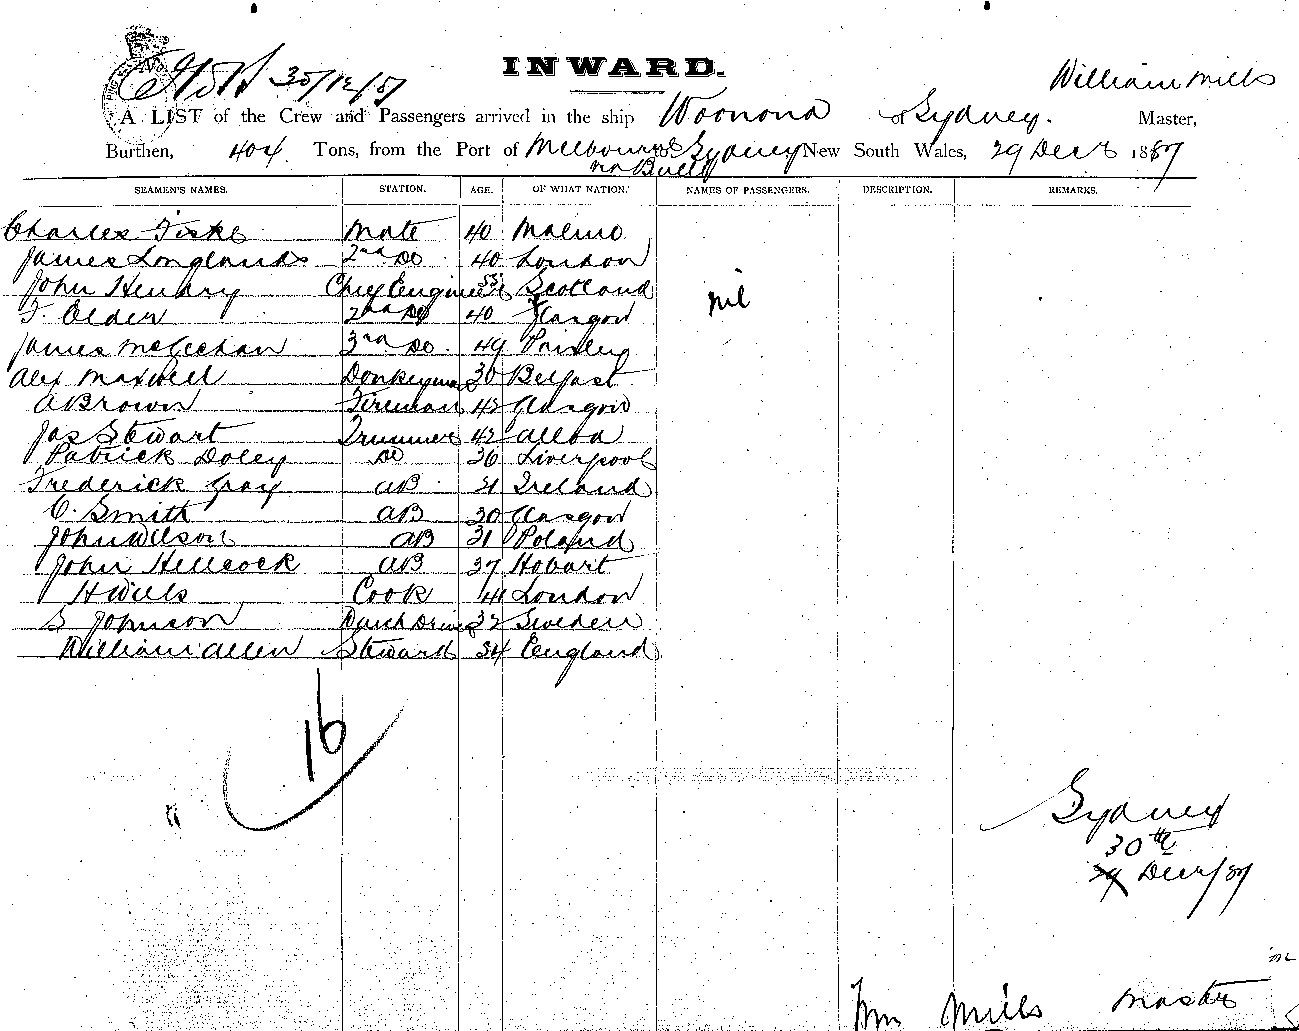 INWARD.
30/12/87
William Mills
A LIST of the Crew and Passengers arrived in the ship Woonona of Sydney. Master,
Burthen, 404 Tons, from the Port of Melbourne to Sydney New South Wales, 29 Decr 1887
via Bulli
SEAMEN'S NAMES. STATION. AGE. OF WHAT NATION. NAMES OF PASSENGERS. DESCRIPTION. REMARKS.
Charles Fiske Mate 40 Malmo
James Longlands 2nd Do 40 London
John Hendry Chief Engineer 53 Scotland
nil
F. Elder 2nd Do 40 Glasgow
James McGechan 3rd Do. 49 Paisley
Alex Maxwell Donkeyman 30 Belfast
A Brown Fireman 42 Glasgow
Jas Stewart Trimmer 42 Alloa
Patrick Doley Do 36 Liverpool
Frederick Gray AB 31 Ireland
C. Smith AB 30 Glasgow
John Wilson AB 31 Poland
John Hillcock AB 37 Hobart
H Wills Cook 41 London
S Johnson 32 Sweden
William Allen Steward 34 England
16
Sydney
30th
29 Decr/87
Wm Mills Master